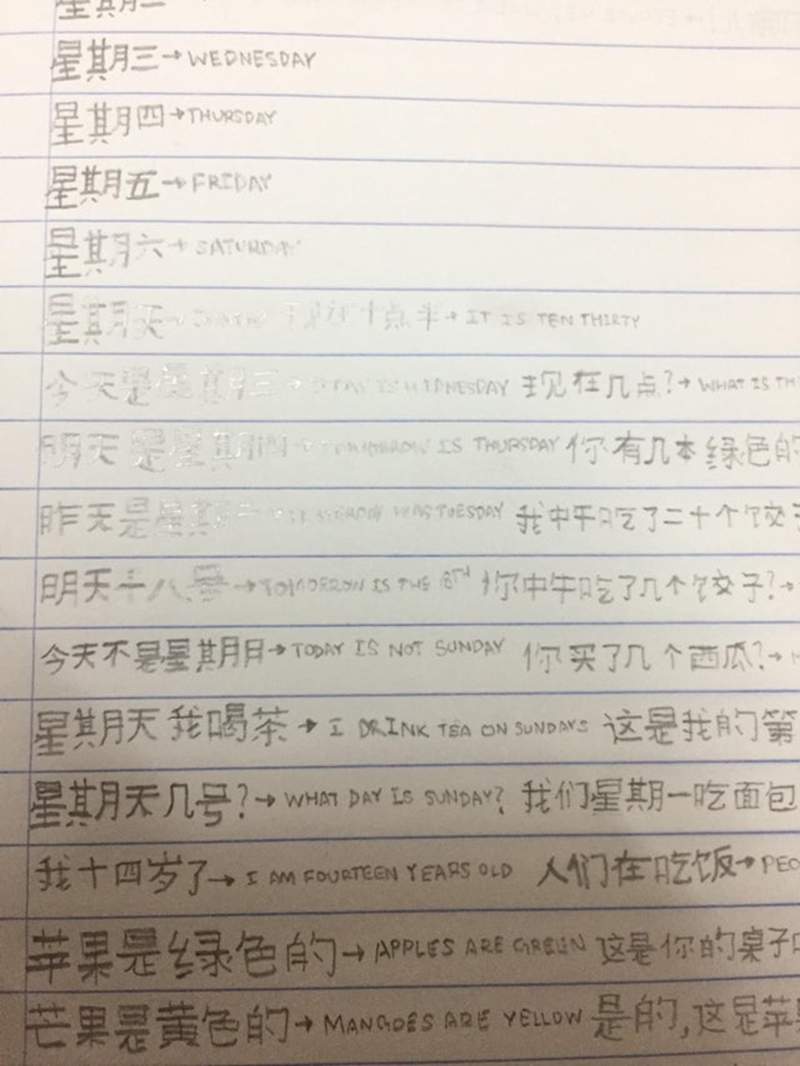 星期二
星期三→WEDNESDAY
星期四→THURSDAY
星期五→FRIDAY
星期六→SATURDAY
星期天→ 现在十点半→IT IS TEN THIRTY
今天是星期三→TODAY IS WEDNESDAY 现在几点?→WHAT IS
明天是星期四→TOMORROW IS THURSDAY 你有几本绿色的
昨天是星期二→ WAS TUESDAY 我中午吃了二十个饺子
明天十八号→TOMORROW IS THE 18TH 你中午吃了几个饺子?→
今天不是星期日→TODAY IS NOT SUNDAY 你买了几个西瓜?→
星期天我喝茶→I DRINK TEA ON SUNDAYS 这是我的第
星期天几号?→WHAT DAY IS SUNDAY? 我们星期一吃面包
我十四岁了→I AM FOURTEEN YEARS OLD 人们在吃饭→
苹果是绿色的→APPLES ARE GREEN 这是你的桌子
芒果是黄色的→MANGOES ARE YELLOW 是的,这是苹